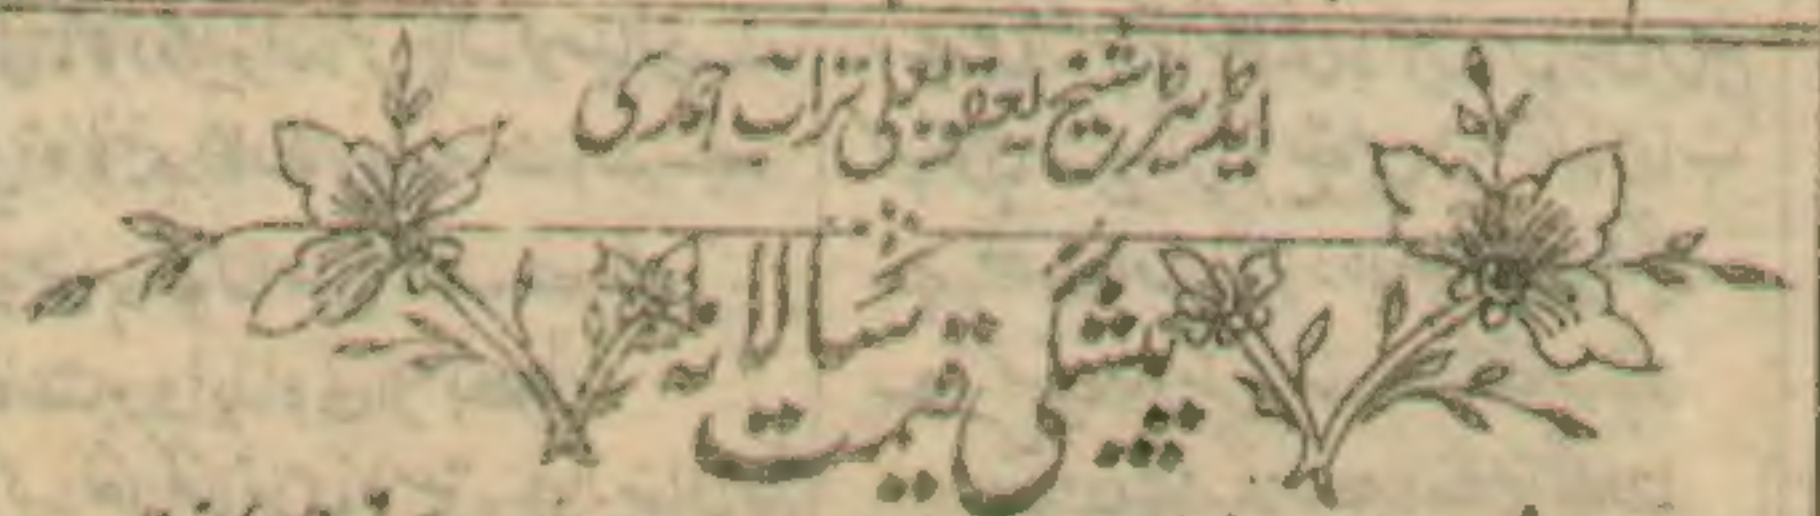 ایڈیٹر شیخ یعقوب علی تراب احمدی
پیشگی قیمت سالانہ